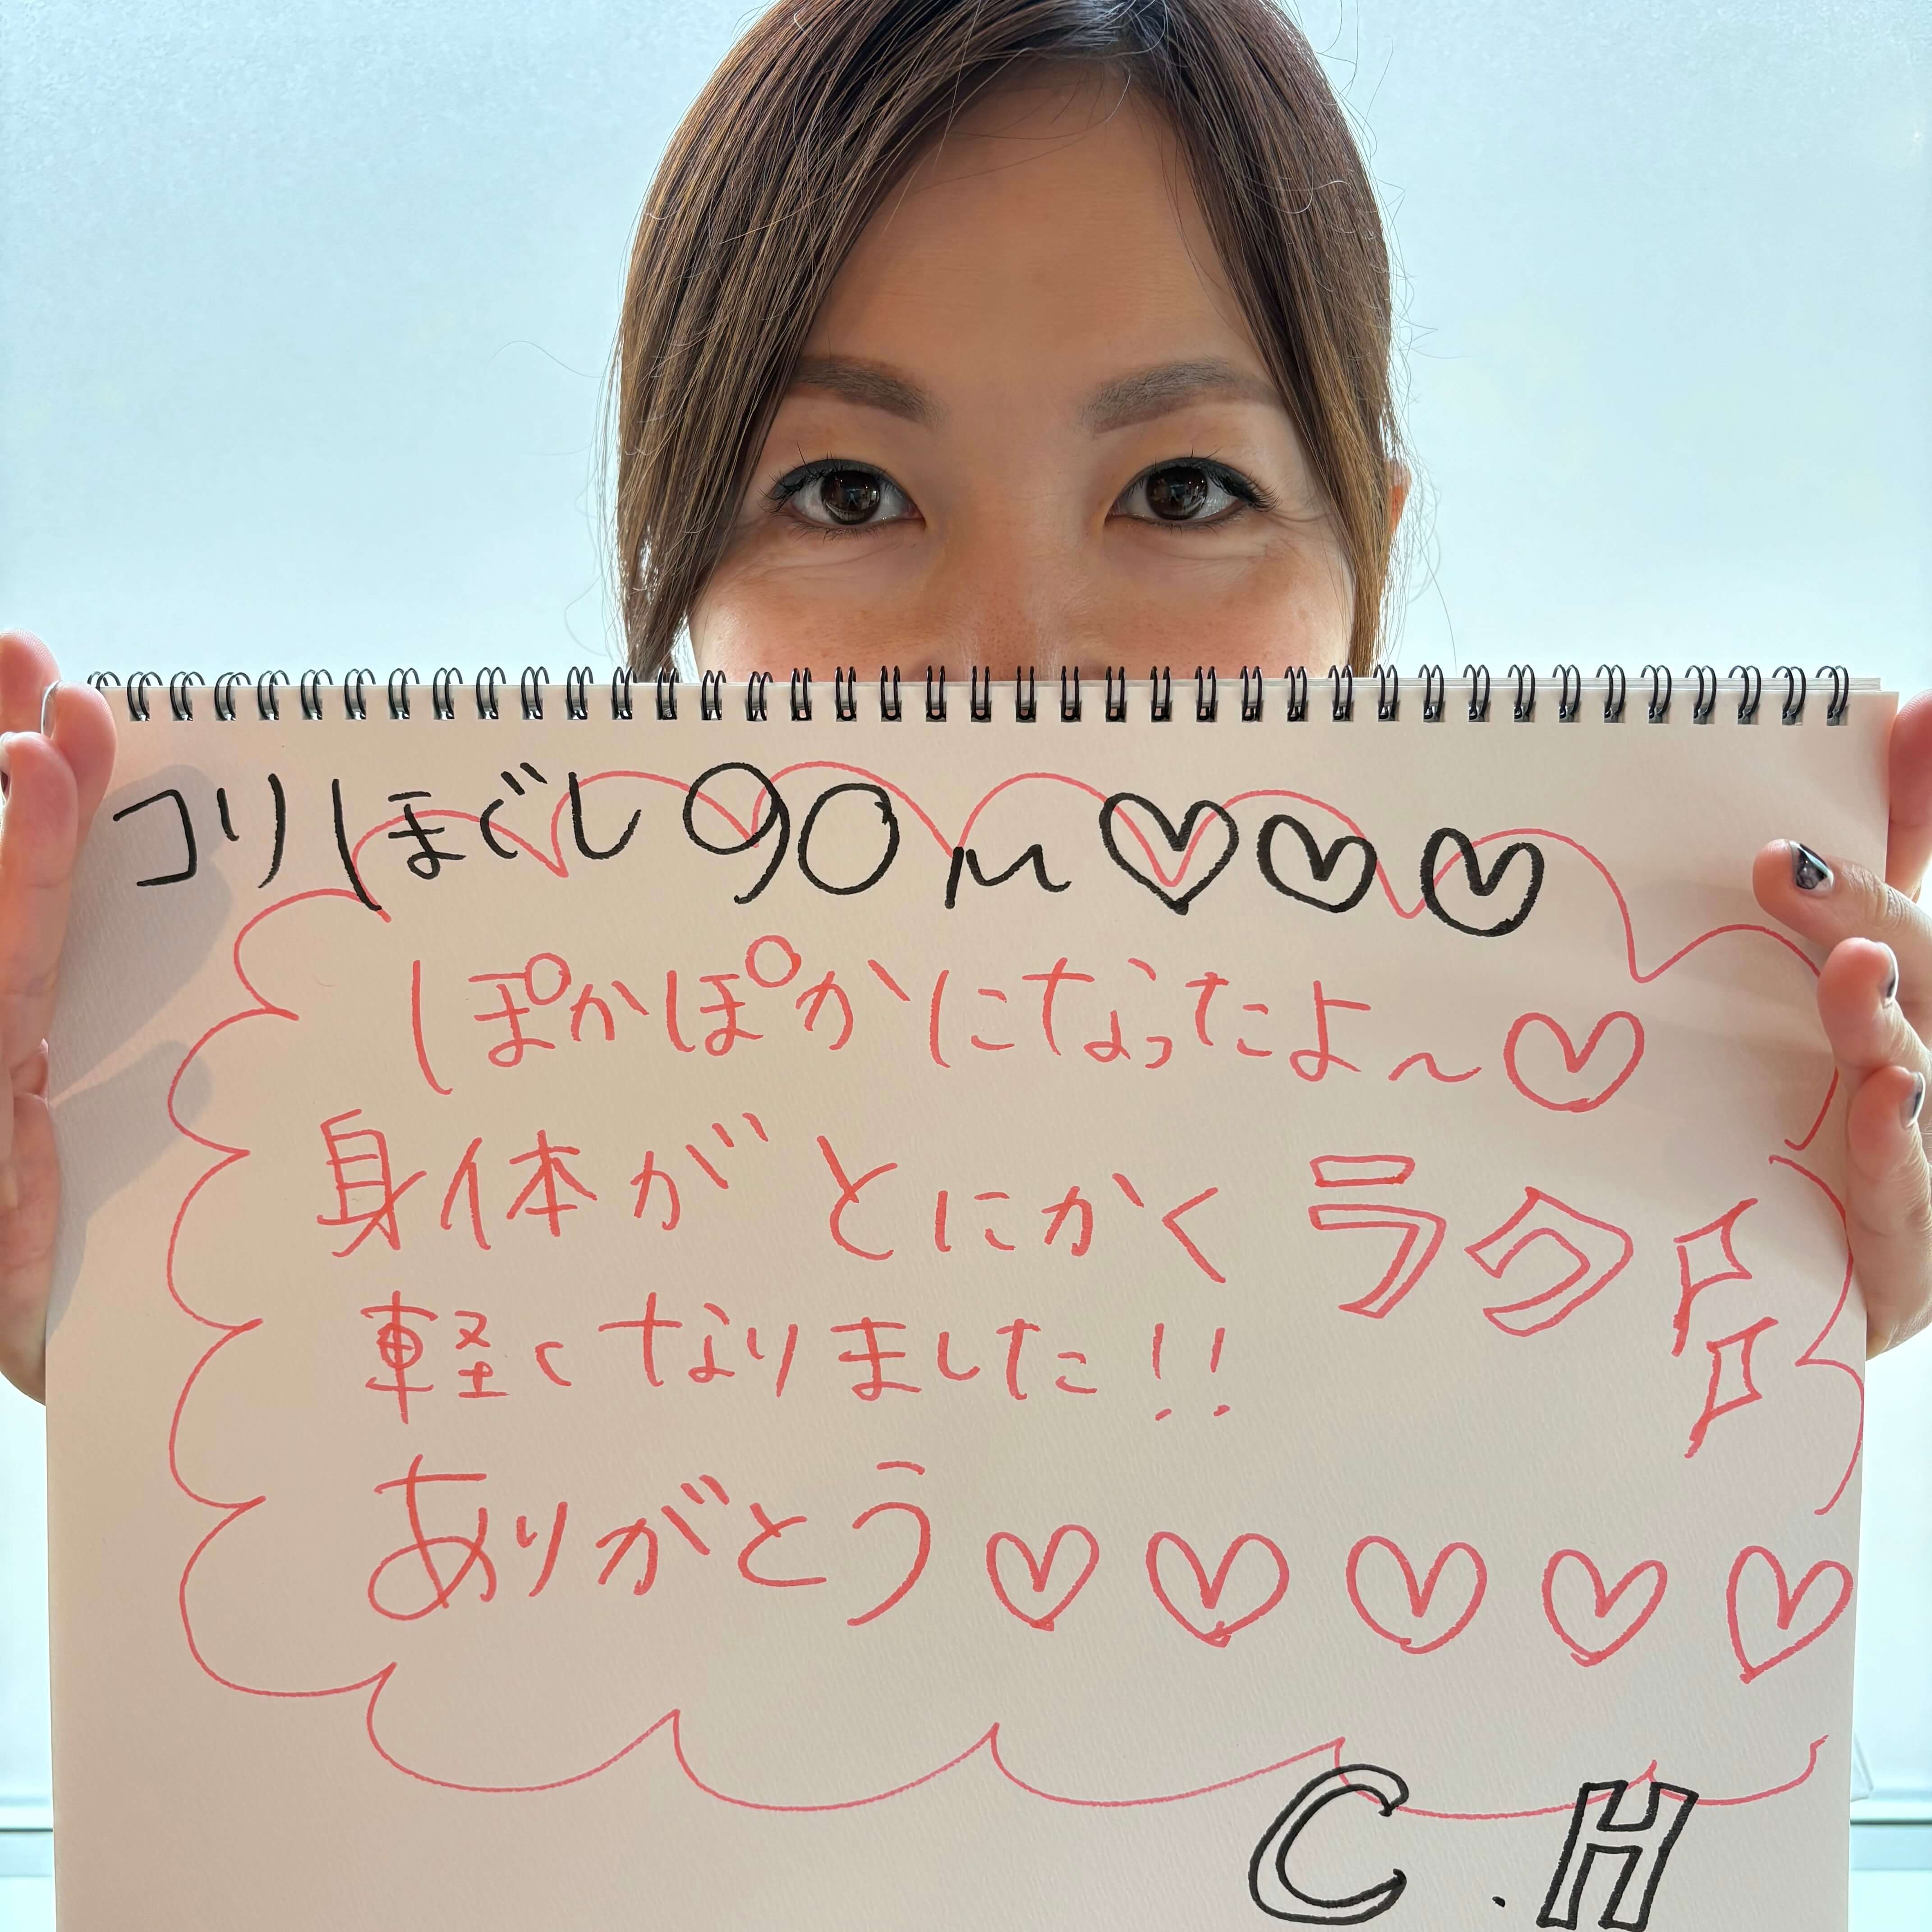 コリほぐし90m♡♡♡
ぽかぽかになったよ～♡
身体がとにかくラク
軽くなりました!!
ありがとう♡♡♡♡♡
C.H